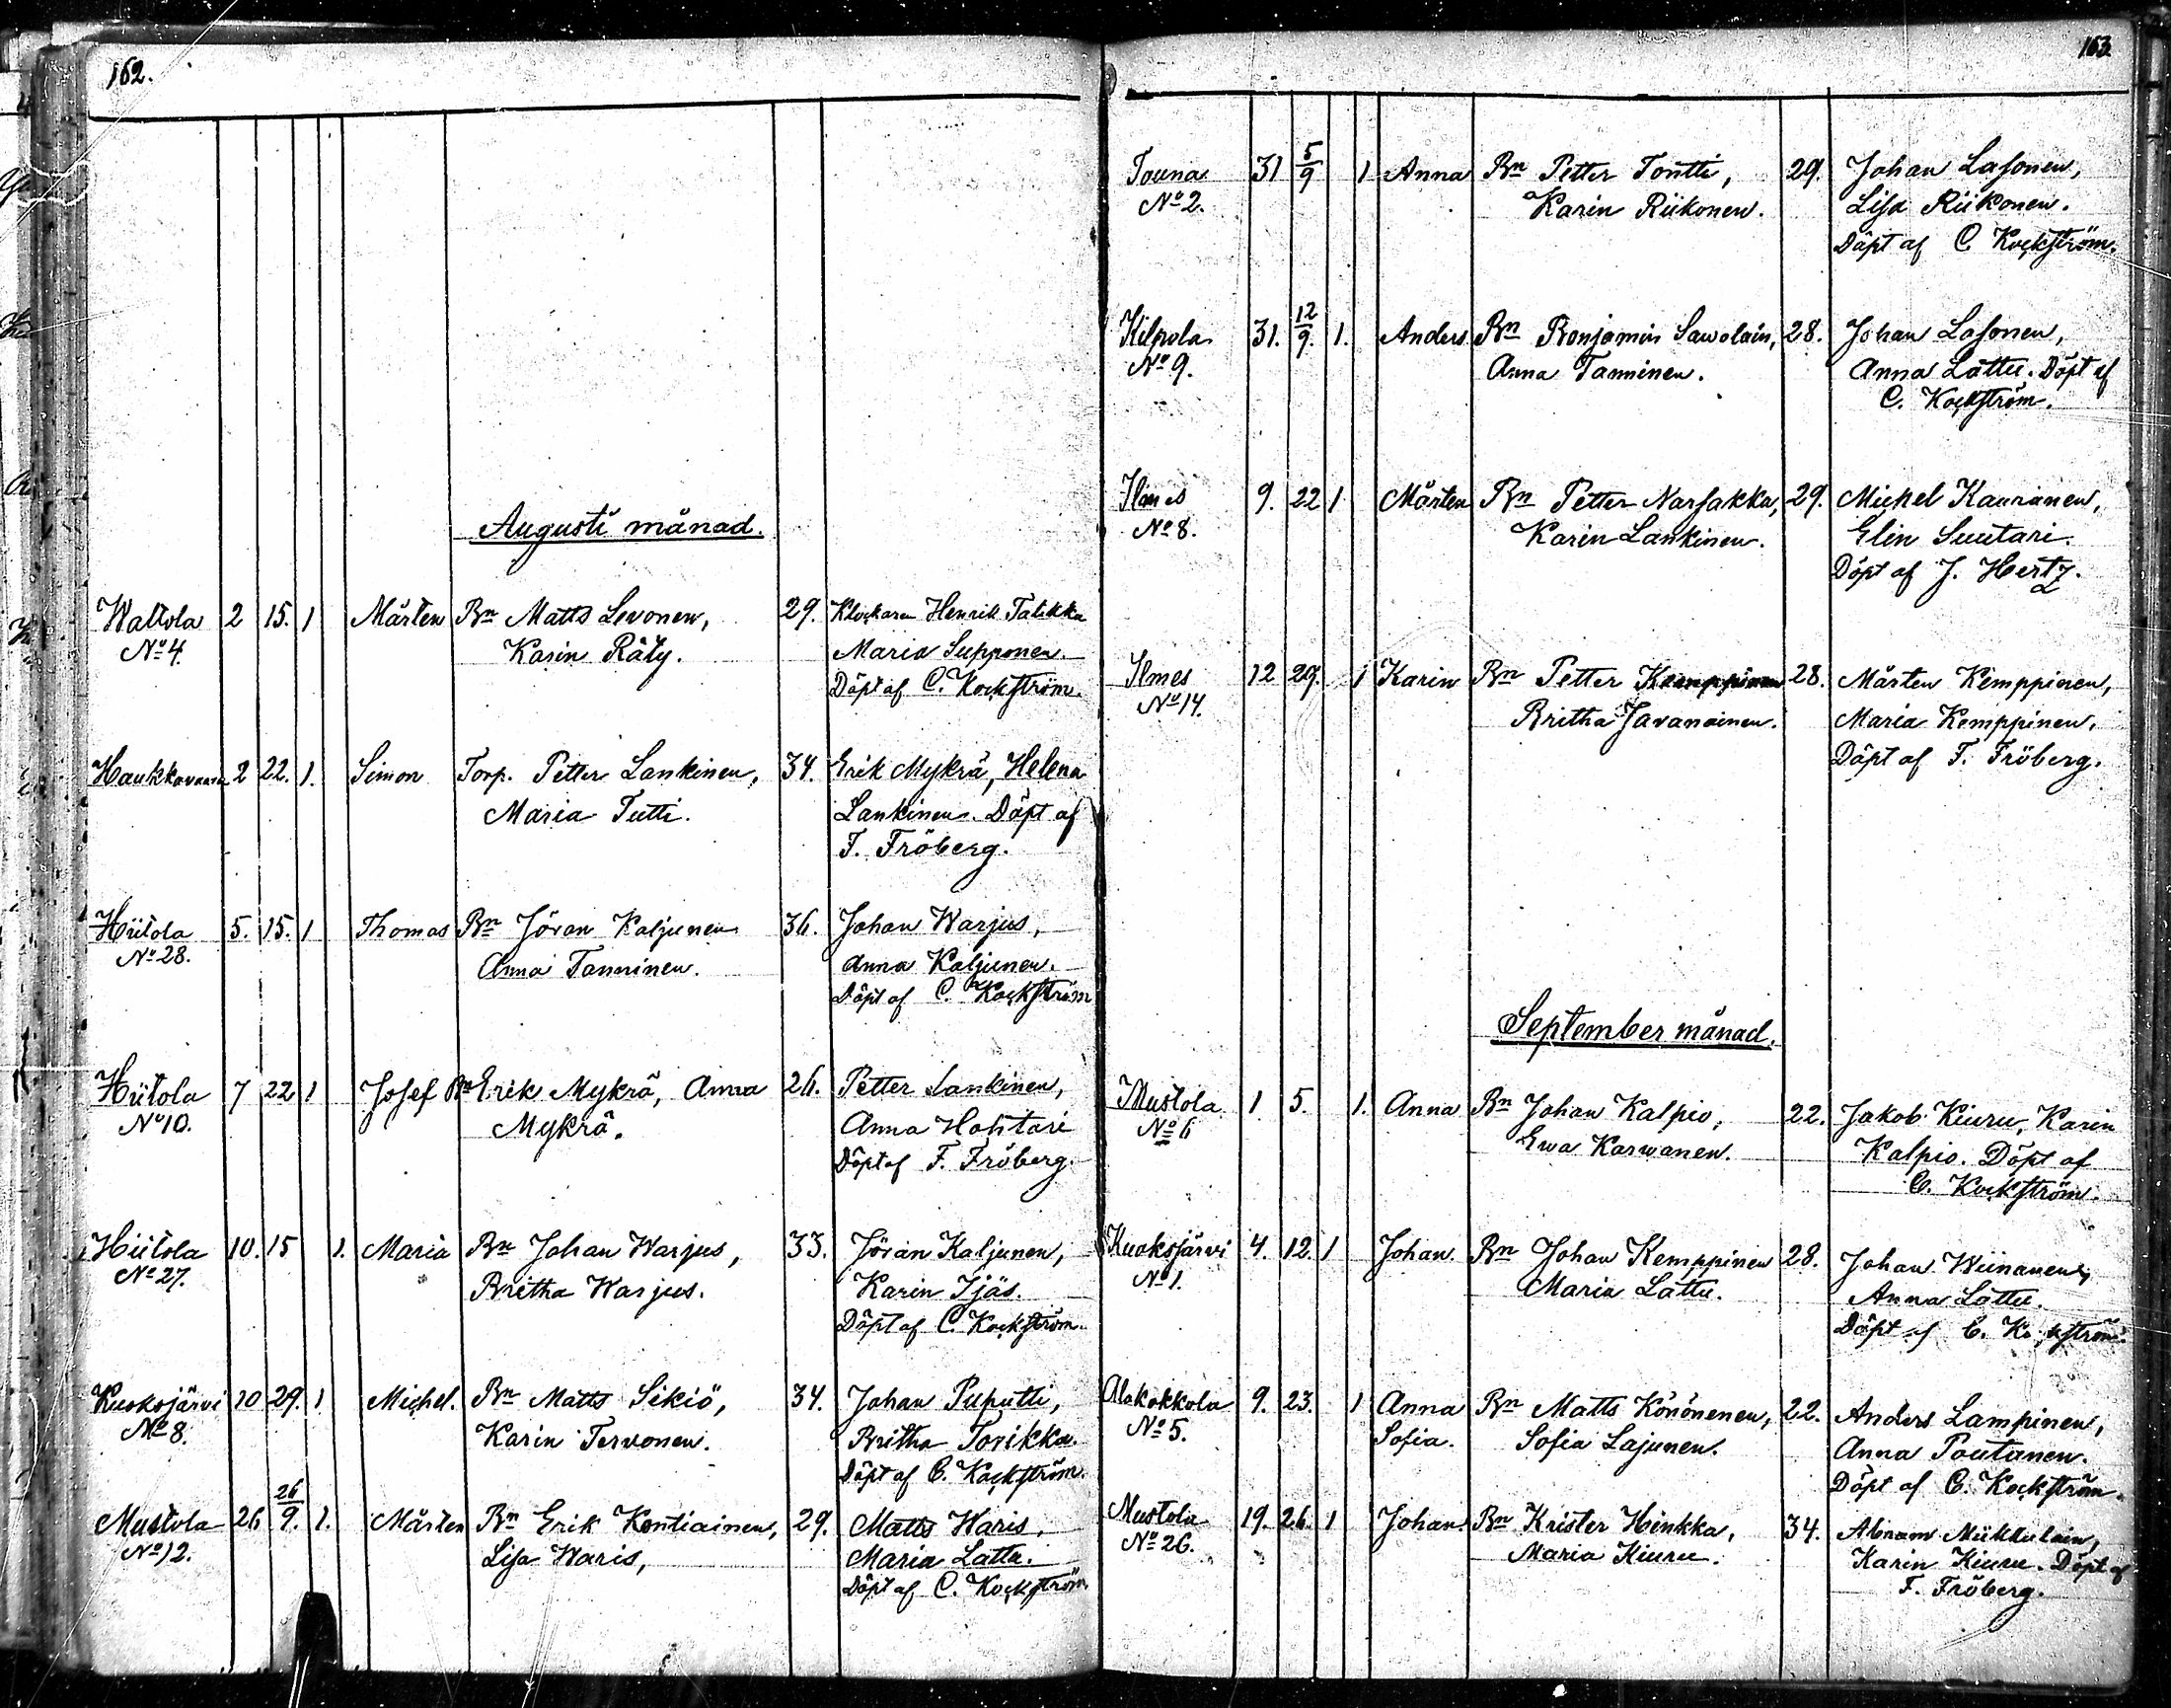 162.
Augusti månad.
Waltola 2 15. 1 Mårten Bn Matts Levonen, 29. Klockaren Henrik Talikka
No 4. Karin Räty. Maria Supponen.
Döpt af C. Kockström.
Haukkavaara 2 22. 1. Simon Torp. Petter Lankinen, 34. Erik Mykrä, Helena
Maria Tutti. Lankinen. Döpt af
F. Fröberg.
Hiitola 5. 15. 1 Thomas Bn Jöran Kaljunen 36. Johan Warjus,
No 28. Anna Tanninen. Anna Kaljunen.
Döpt af C. Kockström
Hiitola 7 22 1 Josef Bn Erik Mykrä, Anna 26. Petter Lankinen,
No 10. Mykrä. Anna Hohtari
Döpt af F. Fröberg.
Hiitola 10. 15 1. Maria Bn Johan Warjus, 33. Jöran Kaljunen,
No 27. Britha Warjus. Karin Ijäs.
Döpt af C. Kockström.
Kuoksjärvi 10 29. 1 Michel. Bn Matts Sikiö, 34. Johan Puputti,
No 8. Karin Tervonen. Britha Torikka.
Döpt af C. Kockström.
Mustola 26 26/9. 1. Mårten Bn Erik Kontiainen, 29. Matts Waris,
No 12. Lisa Waris, Maria Lattu.
Döpt af C. Kockström
163
Touna 31 5/9 1 Anna Bn Petter Tontti, 29. Johan Lasonen,
No 2. Karin Riikonen. Lisa Riikonen.
Döpt af C Kockström.
Kilpola 31. 12/9. 1. Anders Bn Benjamin Sawolain, 28. Johan Lasonen,
No 9. Anna Tanninen. Anna Lattu. Döpt af
C. Kockström.
Ilmes 9. 22 1 Mårten Bn Petter Narsakka, 29. Michel Kauranen,
No 8. Karin Lankinen. Elin Suutari.
Döpt af J. Hertz.
Ilmes 12 29. 1 Karin Bn Petter Kemppinen 28. Mårten Kemppinen,
No 14. Britha Javanainen. Maria Kemppinen,
Döpt af F. Fröberg.
September månad.
Mustola 1. 5. 1. Anna Bn Johan Kalpio, 22. Jakob Kiuru, Karin
No 6 Ewa Karwanen. Kalpio. Döpt af
C. Kockström.
Kuoksjärvi 4. 12. 1 Johan. Bn Johan Kemppinen 28. Johan Wiinanen,
No 1. Maria Lattu. Anna Lattu.
Döpt af C. Kockström.
Alakokkola 9. 23. 1 Anna Bn Matts Könönenen, 22. Anders Lampinen,
No 5. Sofia. Sofia Lajunen. Anna Poutanen.
Döpt af C. Kockström.
Mustola 19. 26. 1 Johan. Bn Krister Hinkka, 34. Abram Miikkulain,
No 26. Maria Kiuru. Karin Kiuru. Döpt af
F. Fröberg.